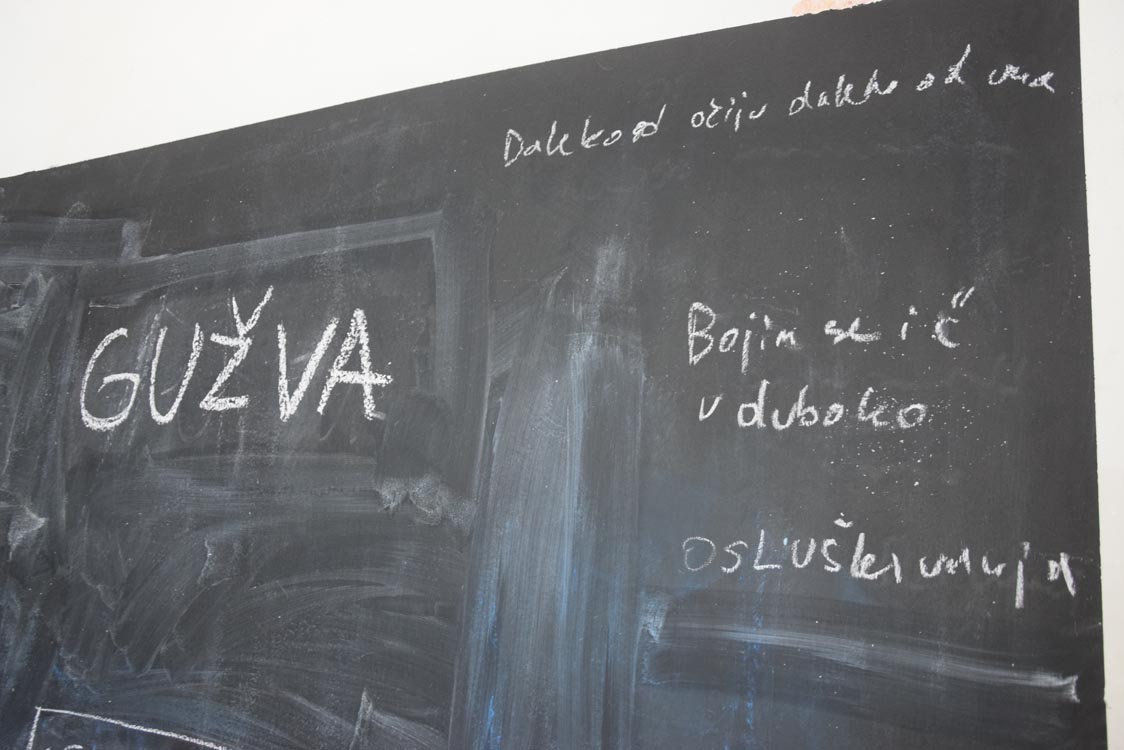 Daleko od očiju daleko od uma
GUŽVA
Bojim se ići
u duboko
OSLUŠkivanja